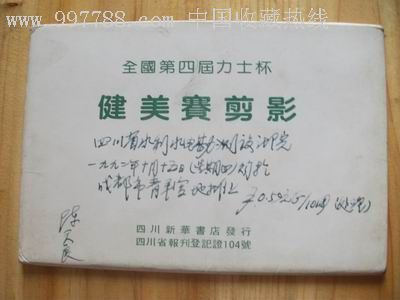 www.997788.com 中国收藏热线
全國第四屆力士杯
健美賽剪影
四川省水利水电勘测设计院
一九九二年十月十五日(星期四)购於
成都市青年宫地摊上
陈
四川新華書店發行
四川省報刊登記證104號